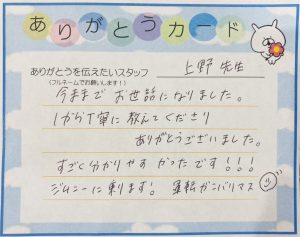 ありがとうカード
ありがとうを伝えたいスタッフ 上野 先生
(フルネームでお願いします!)
今まで お世話になりました。
1から丁寧に 教えてくださり
ありがとうございました。
すごく分かりやすかったです!!!
ジムニーに乗ります! 運転ガンバリマス